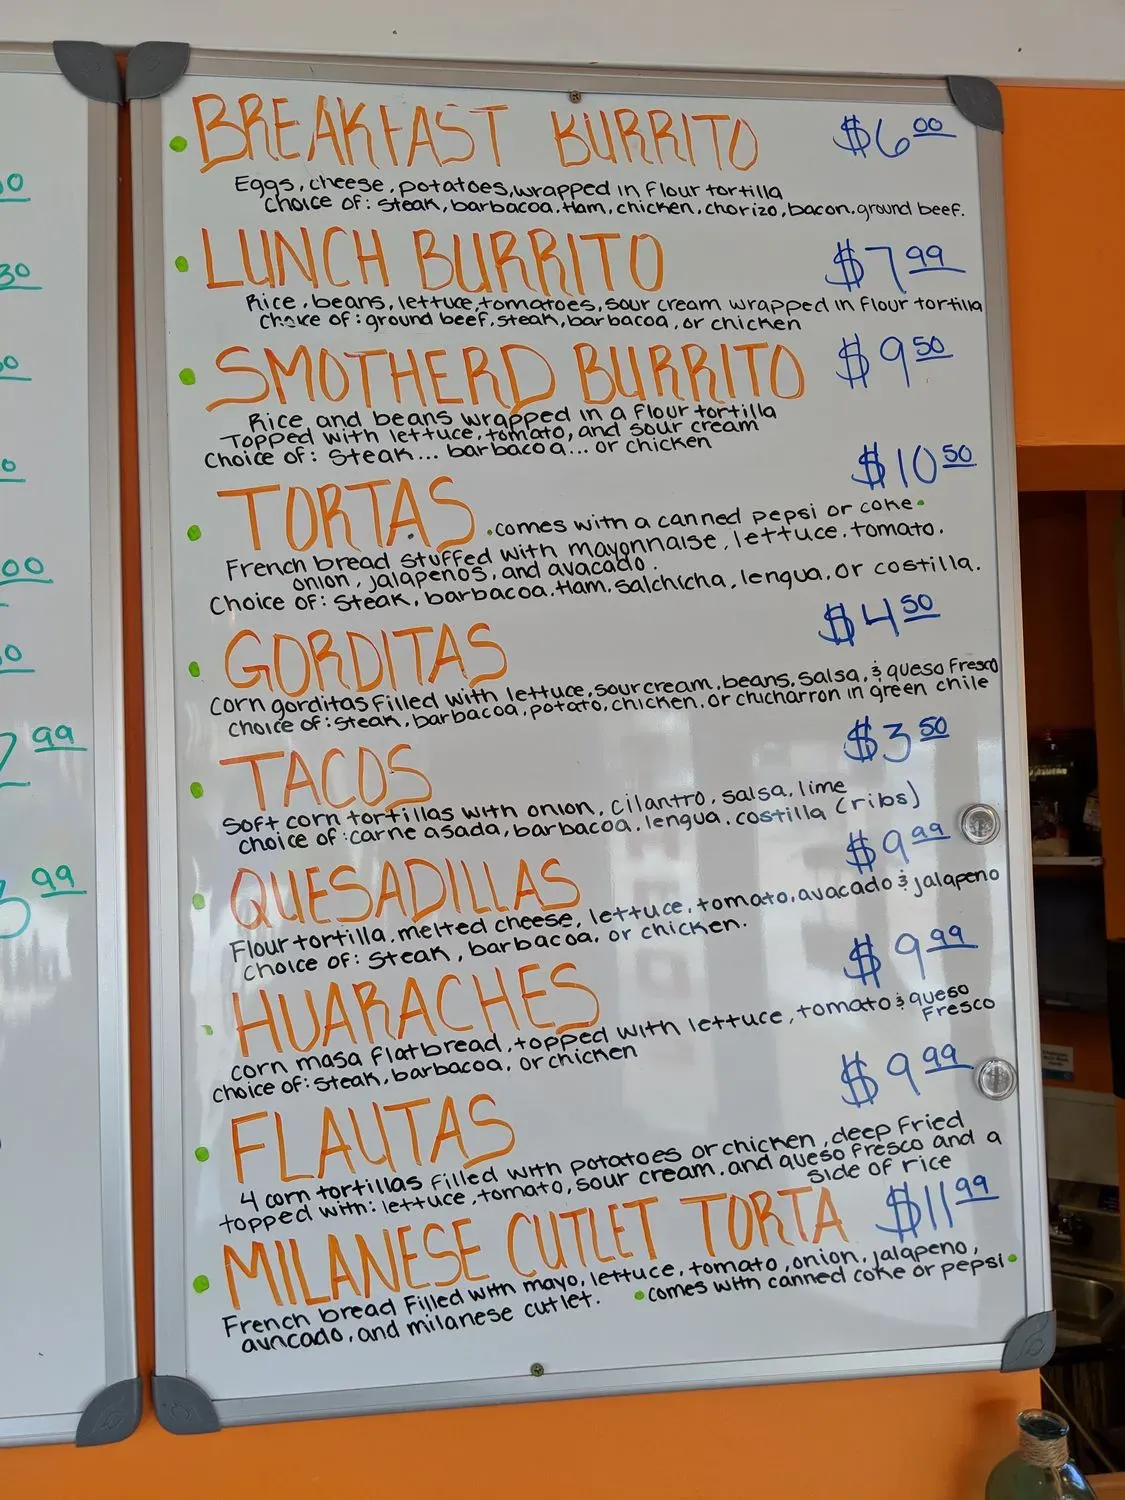 BREAKFAST BURRITO $6.00
Eggs, cheese, potatoes, wrapped in flour tortilla
Choice of: Steak, barbacoa, Ham, chicken, chorizo, bacon, ground beef.
LUNCH BURRITO $7.99
Rice, beans, lettuce, tomatoes, sour cream wrapped in flour tortilla
Choice of: ground beef, steak, barbacoa, or chicken
SMOTHERD BURRITO $9.50
Rice and beans wrapped in a flour tortilla
Topped with lettuce, tomato, and sour cream
Choice of: Steak... barbacoa... or chicken
$10.50
TORTAS •comes with a canned pepsi or coke•
French bread stuffed with mayonnaise, lettuce, tomato,
onion, jalapenos, and avacado.
Choice of: Steak, barbacoa, Ham, salchicha, lengua, or costilla.
GORDITAS $4.50
Corn gorditas filled with lettuce, sour cream, beans, salsa, & queso fresco
choice of: steak, barbacoa, potato, chicken, or chicharron in green chile
TACOS $3.50
Soft corn tortillas with onion, cilantro, salsa, lime
choice of: carne asada, barbacoa, lengua, costilla (ribs)
QUESADILLAS $9.99
Flour tortilla, melted cheese, lettuce, tomato, avacado & jalapeno
choice of: Steak, barbacoa, or chicken.
HUARACHES $9.99
corn masa flatbread, topped with lettuce, tomato & queso
fresco
choice of: Steak, barbacoa, or chicken
FLAUTAS $9.99
4 corn tortillas filled with potatoes or chicken, deep fried
topped with: lettuce, tomato, sour cream, and queso fresco and a
side of rice
MILANESE CUTLET TORTA $11.99
French bread filled with mayo, lettuce, tomato, onion, jalapeno,
avacado, and milanese cutlet. •comes with canned coke or pepsi•
0
30
0
0
00
0
2.99
3.99